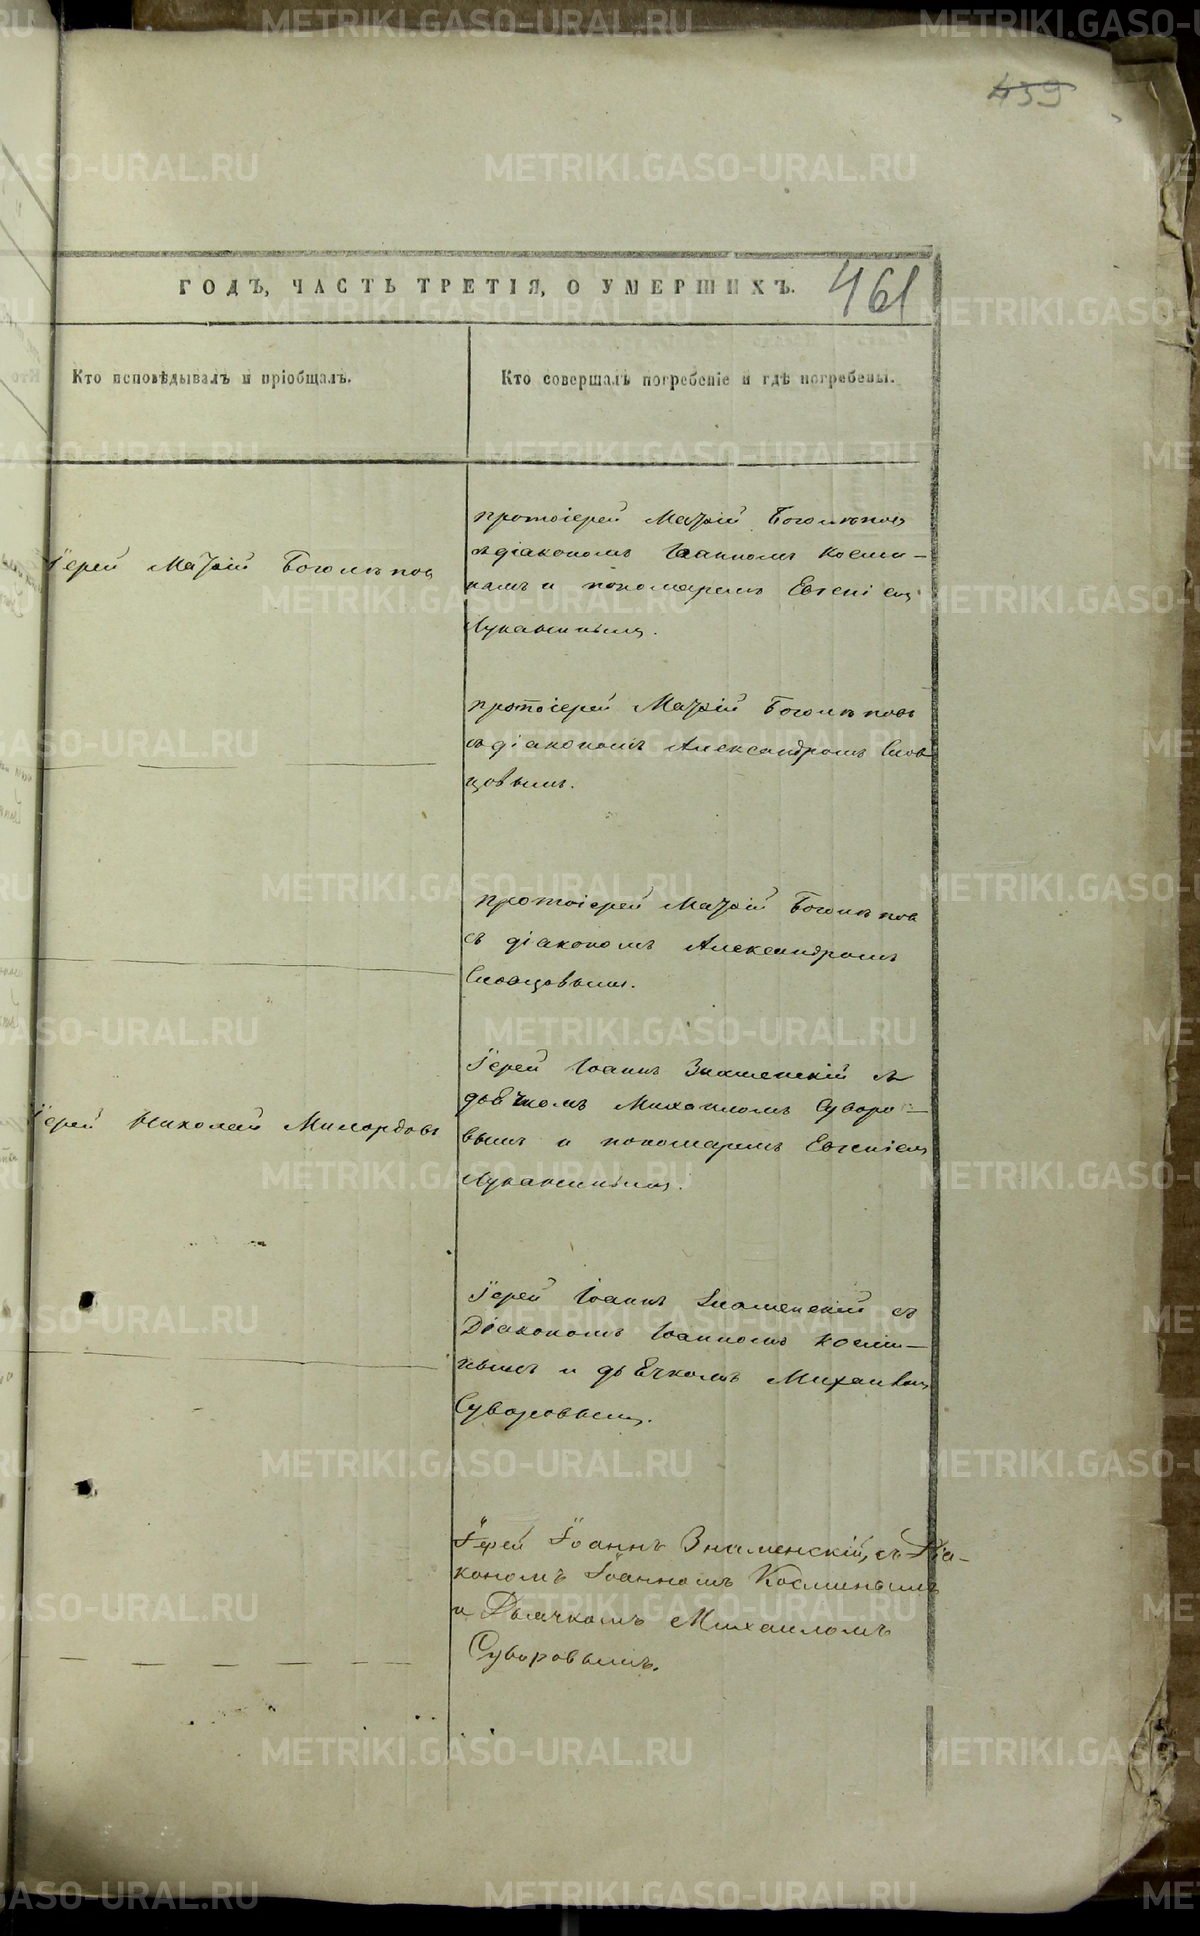 METRIKI.GASO-URAL.RU
439
ГОДЪ, ЧАСТЬ ТРЕТІЯ, О УМЕРШИХЪ.
461
Кто исповѣдывалъ и пріобщалъ.
Кто совершалъ погребеніе и гдѣ погребены.
Іерей Матѳій Боголѣпов
протоіерей Матѳій Боголѣпов
съ діакономъ Іоанномъ Косми-
нымъ и пономаремъ Евгеніем
Луканиным.
протоіерей Матѳій Боголѣповъ
съ діакономъ Александромъ Слов
цовымъ.
протоіерей Матѳій Боголѣпов
съ діакономъ Александромъ
Словцовымъ.
Іерей Николай Милордовъ
Іерей Іоаннъ Знаменскій съ
дьячкомъ Михаиломъ Суворо-
вымъ и пономаремъ Евгеніем
Луканиным.
Іерей Іоаннъ Знаменскій съ
Діакономъ Іоанномъ Косми-
нымъ и дьячкомъ Михаилом
Суворовым.
Іерей Іоаннъ Знаменскій, съ Діа-
кономъ Іоанномъ Косминымъ
и Дьячкомъ Михаиломъ
Суворовымъ.